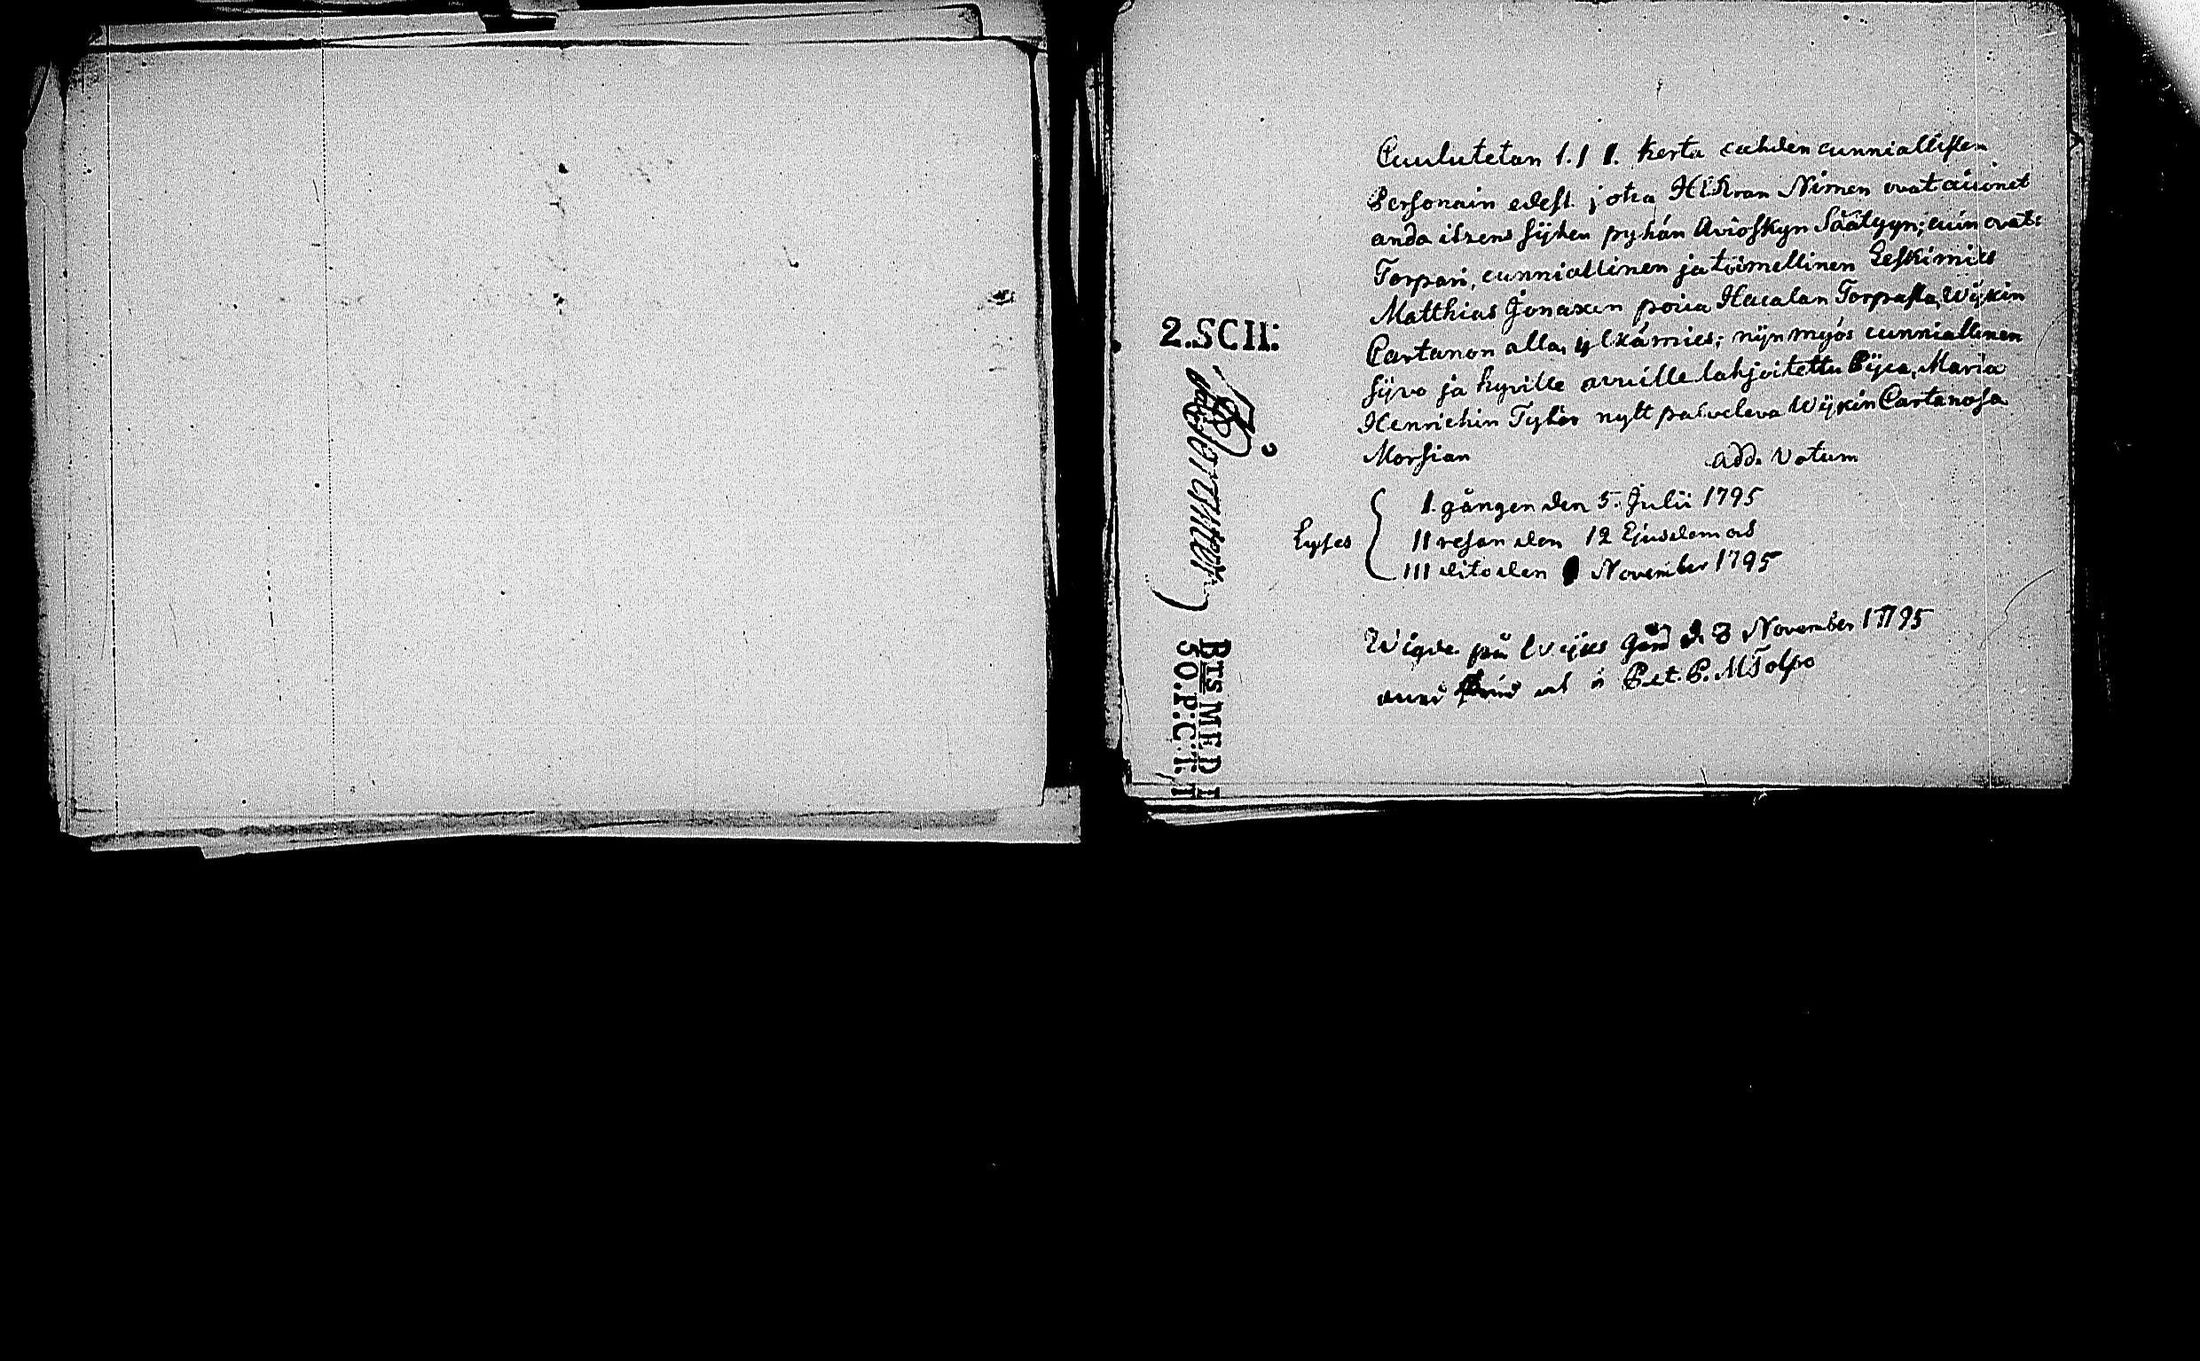 Cuulutetan 1. kerta cahden cunniallisen
Personain edest jotca HERran Nimen ovat aicionet
anda itzens sijhen pyhän Avioskyn Säätyyn; cuin ovat:
Torpari, cunniallinen ja toimellinen Leskimies
Matthias Jonaxen poica Torpasta, Wijkin
Cartanon alla, ylkämies; nijn myös cunniallinen
sijvo ja hyville avuille lahjoitettu Pijca, Maria
Henrichin Tytär nytt palveleva Wijkin Cartanosa
Morsian add. Votum
2.SCH:
Lyses
1. gången den 5. Julii 1795
11 resan den 12 Ejusdem
111 dito den November 1795
BTS M.F.D
50.P.C.T.T
Wigde på Wijks Gård d. 3 November 1795
af Pet. P.